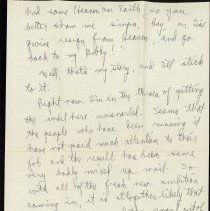 had some Heaven on Earth so you
better show me singin, boy, or I'm
giving resign from Heaven and go
back to my Bobby!
Well thats my story and I'll stick
to it.
Right now I'm in the throes of getting
the mail here unsnarled. Seems that
the people who have been running it
have not paid much attention to their
job and the result has been some
very badly mixed up mail. So
with all of the fresh new ambition
coming in, it is altogether likely that